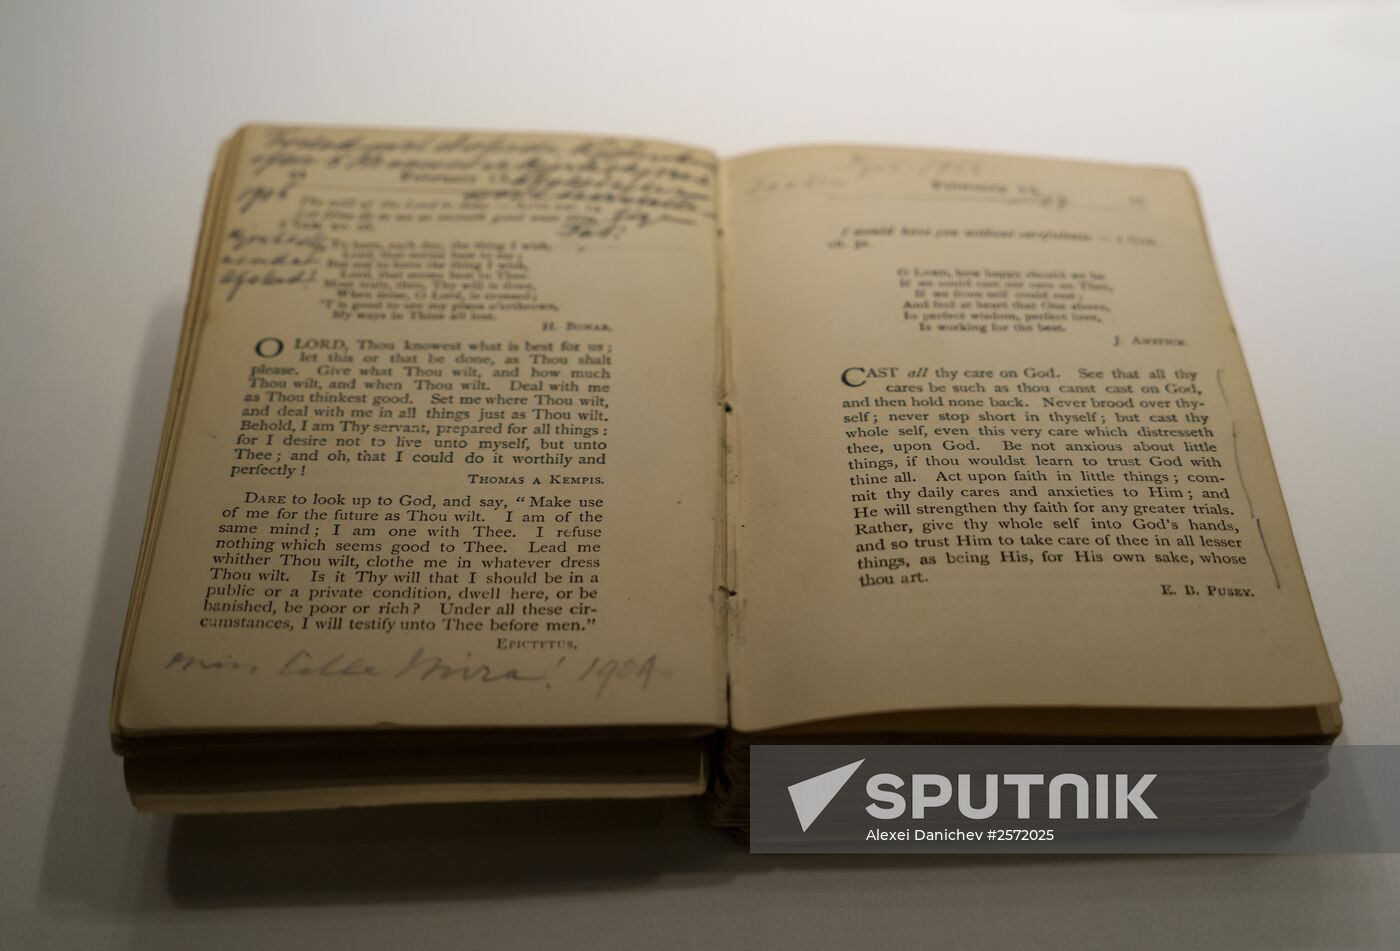 February
To have, each day, the thing I wish,
Lord, that seems best to me;
But not to have the thing I wish,
Lord, that seems best to Thee.
Most truly, then, Thy will is done,
When mine, O Lord, is crossed;
'T is good to see my plans o'erthrown,
My ways in Thine all lost.
H. BONAR.
O LORD, Thou knowest what is best for us;
let this or that be done, as Thou shalt
please. Give what Thou wilt, and how much
Thou wilt, and when Thou wilt. Deal with me
as Thou thinkest good. Set me where Thou wilt,
and deal with me in all things just as Thou wilt.
Behold, I am Thy servant, prepared for all things:
for I desire not to live unto myself, but unto
Thee; and oh, that I could do it worthily and
perfectly!
THOMAS A KEMPIS.
DARE to look up to God, and say, "Make use
of me for the future as Thou wilt. I am of the
same mind; I am one with Thee. I refuse
nothing which seems good to Thee. Lead me
whither Thou wilt, clothe me in whatever dress
Thou wilt. Is it Thy will that I should be in a
public or a private condition, dwell here, or be
banished, be poor or rich? Under all these cir-
cumstances, I will testify unto Thee before men."
EPICTETUS.
min lille 1904
February
I would have you without carefulness. — 1 COR.
O LORD, how happy should we be
If we could cast our care on Thee,
If we from self could rest;
And feel at heart that One above,
In perfect wisdom, perfect love,
Is working for the best.
J. ANSTICE.
CAST all thy care on God. See that all thy
cares be such as thou canst cast on God,
and then hold none back. Never brood over thy-
self; never stop short in thyself; but cast thy
whole self, even this very care which distresseth
thee, upon God. Be not anxious about little
things, if thou wouldst learn to trust God with
thine all. Act upon faith in little things; com-
mit thy daily cares and anxieties to Him; and
He will strengthen thy faith for any greater trials.
Rather, give thy whole self into God's hands,
and so trust Him to take care of thee in all lesser
things, as being His, for His own sake, whose
thou art.
E. B. PUSEY.
SPUTNIK
Alexei Danichev #2572025